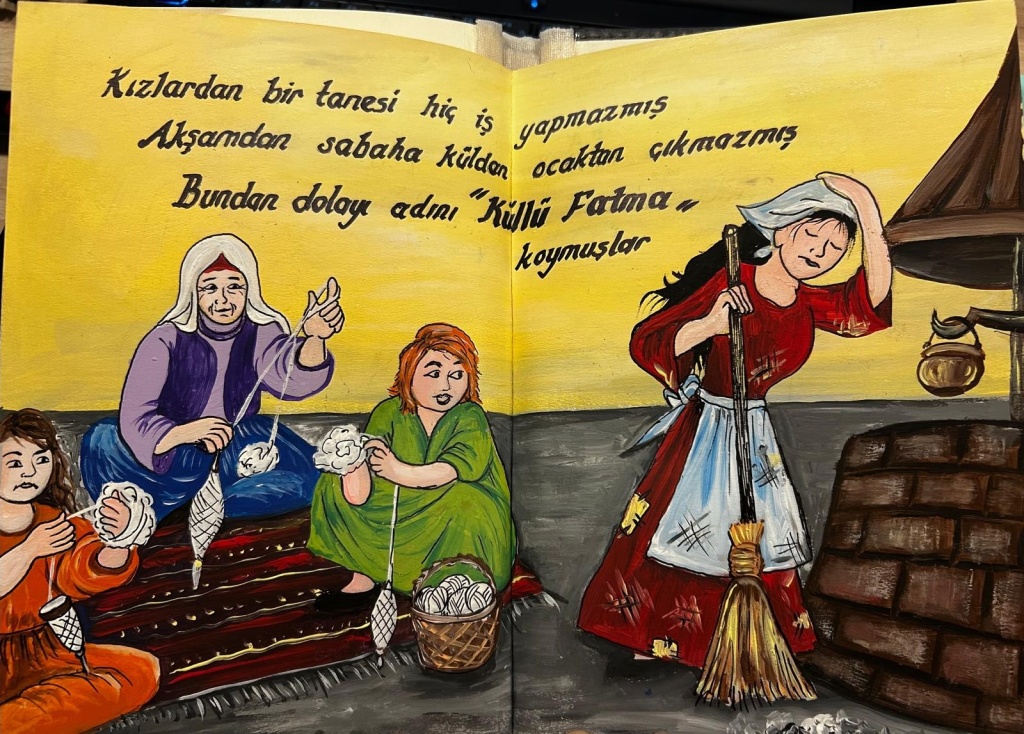 Kızlardan bir tanesi hiç iş yapmazmış
Akşamdan sabaha külden ocaktan çıkmazmış
Bundan dolayı adını "Küllü Fatma"
koymuşlar